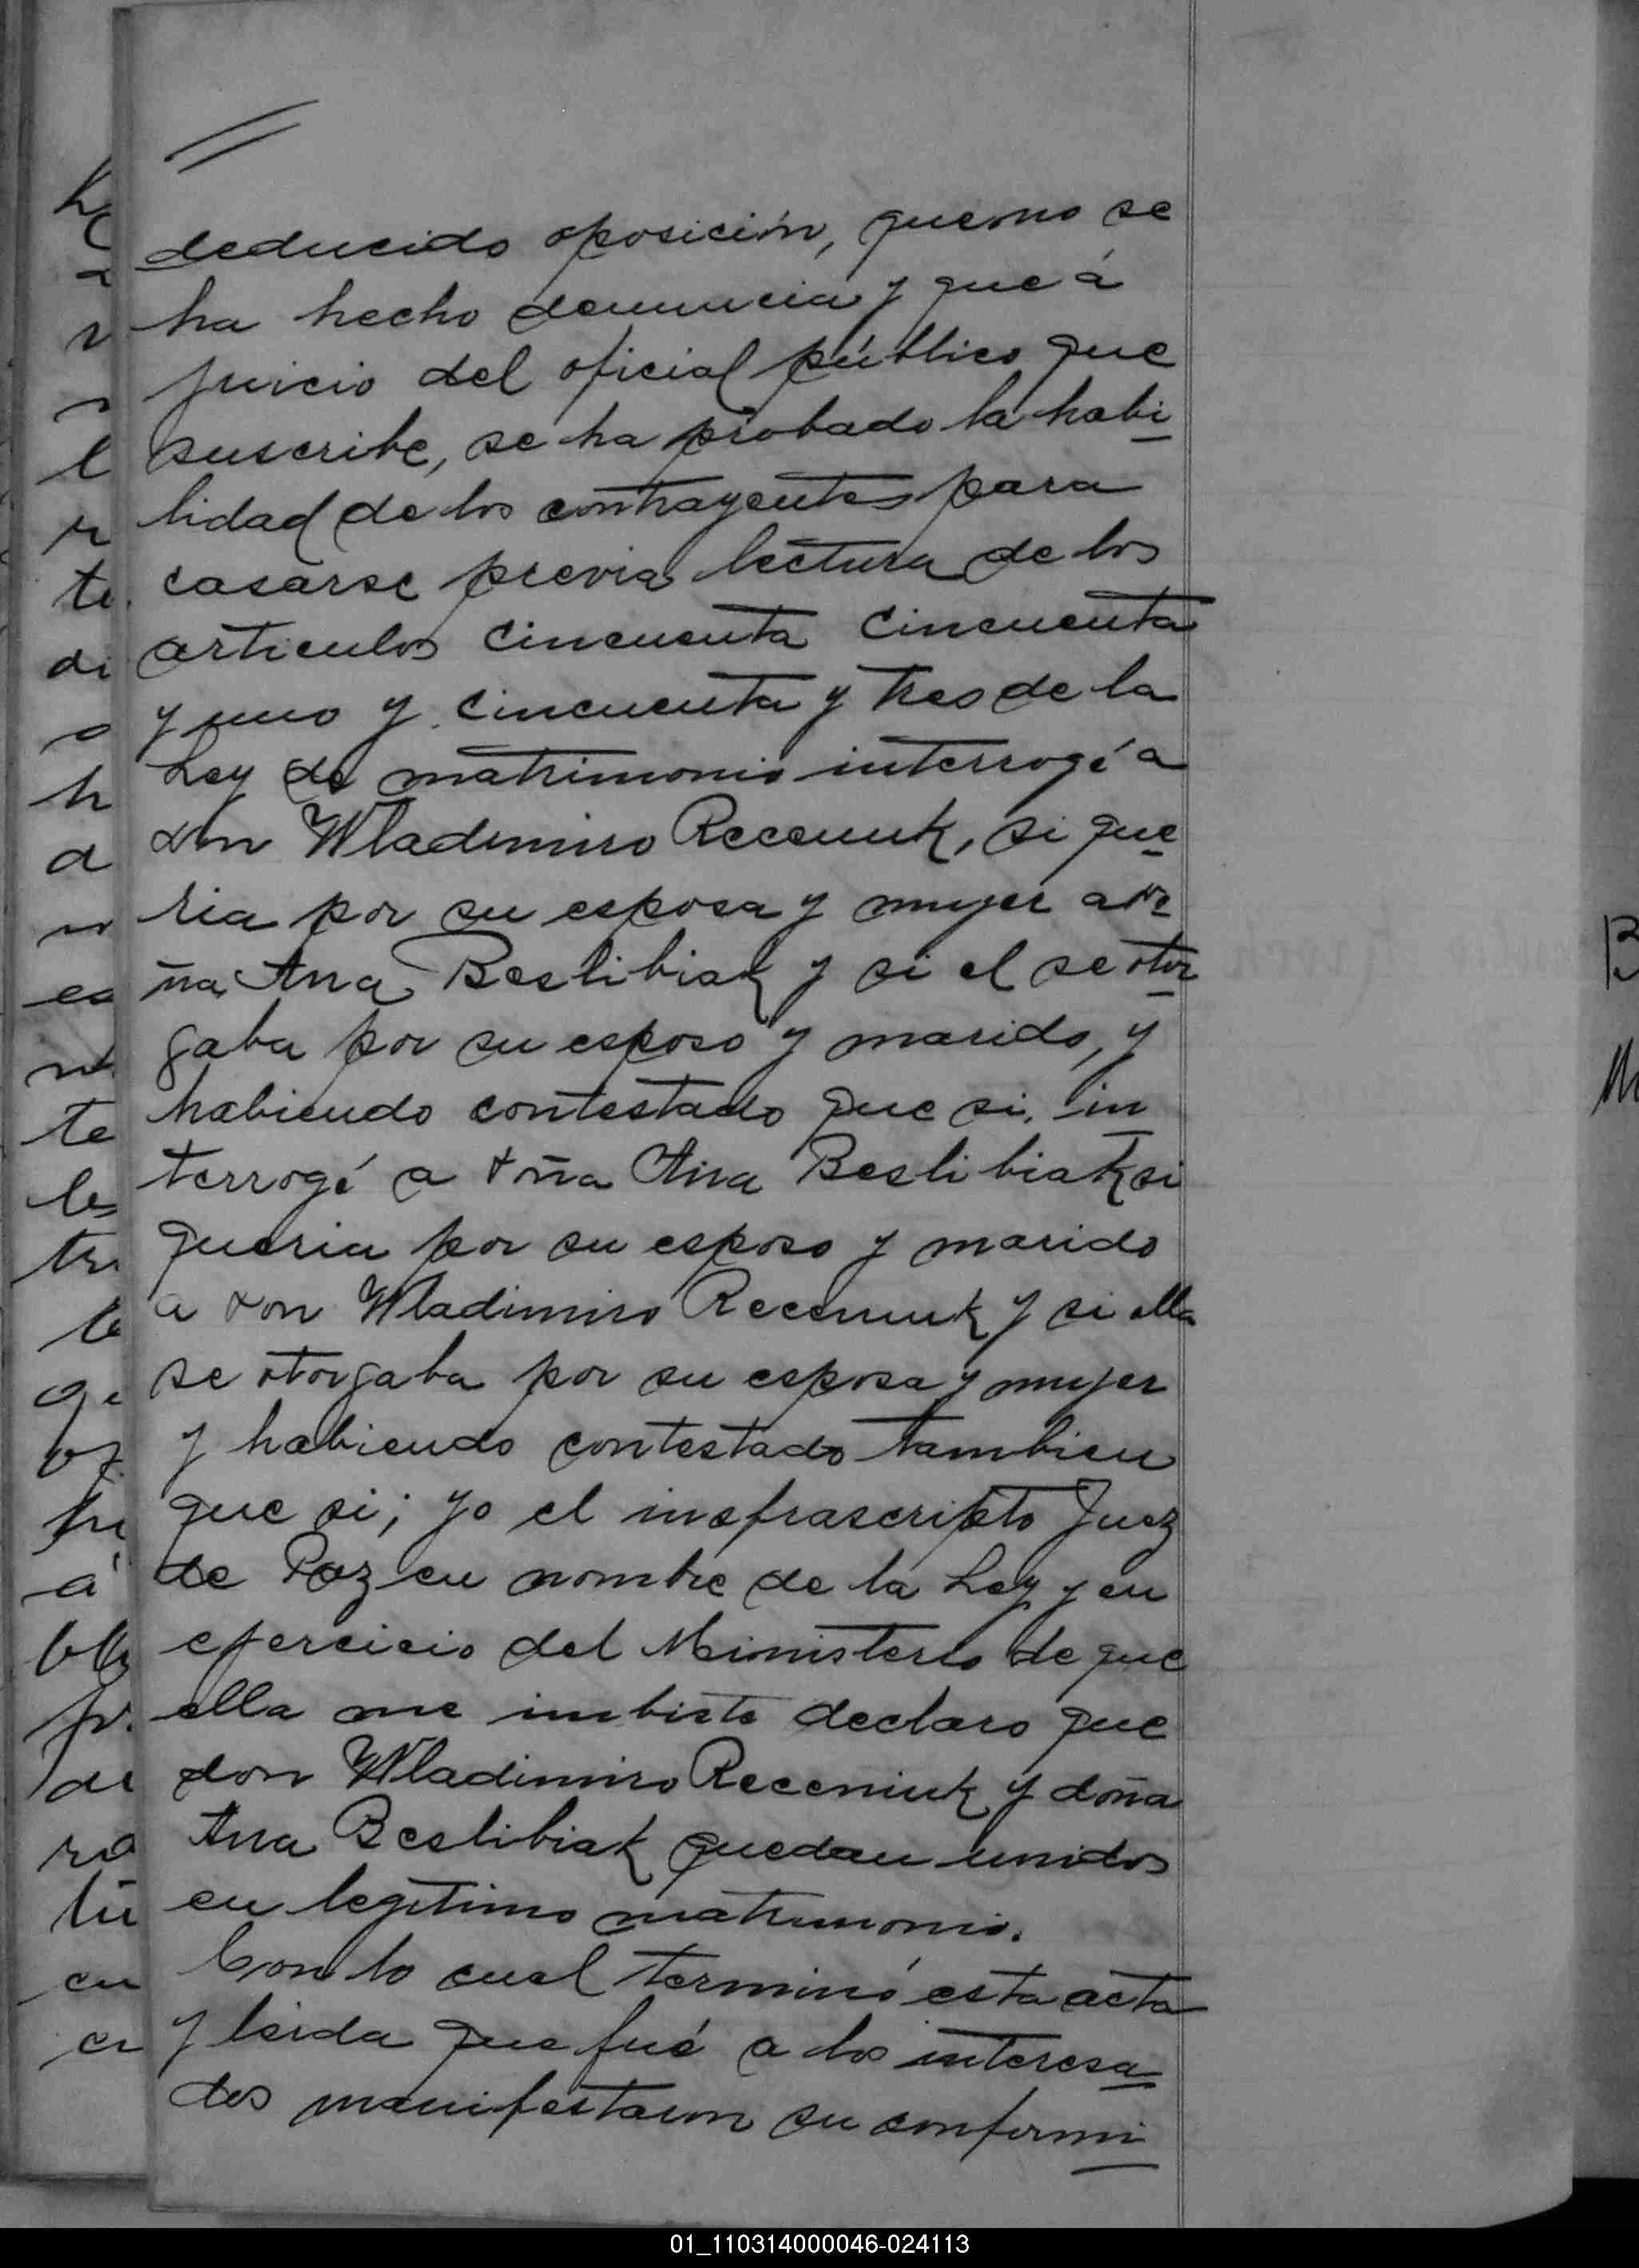 deducido oposición, que no se
ha hecho denuncia y que á
juicio del oficial público que
suscribe, se ha probado la habi
lidad de los contrayentes para
casarse previa lectura de los
articulos cincuenta cincuenta
y uno y cincuenta y tres de la
Ley de matrimonio interrogé a
don Wladimiro Receniuk, si que
ria por su esposa y mujer a do
ña Ana Beslibiak y si el se otor
gaba por su esposo y marido, y
habiendo contestado que si, in
terrogé a doña Ana Beslibiak si
queria por su esposo y marido
a don Wladimiro Receniuk y si ella
se otorgaba por su esposa y mujer
y habiendo contestado tambien
que si; yo el insfrascripto Juez
de Paz en nombre de la Ley y en
ejercicio del Ministerio de que
ella me imbiste declaro que
don Wladimiro Receniuk y doña
Ana Beslibiak quedan unidos
en legitimo matrimonio.
Con lo cual terminó esta acta
y leida que fué a los interesa
dos manifestaron su conformi
01_110314000046-024113